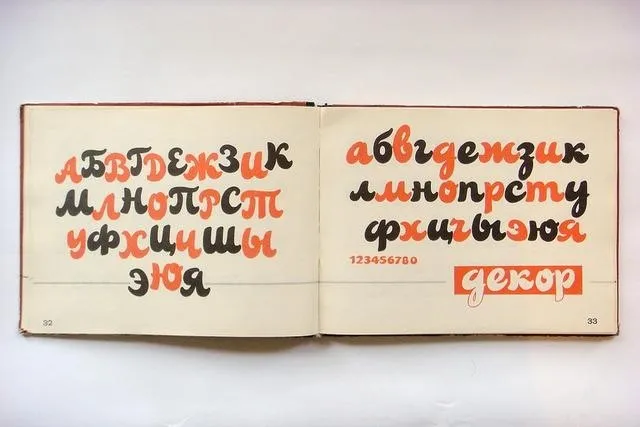 АБВГДЕЖЗИК
МЛНОПРСТ
УФХЦЧШЫ
ЭЮЯ
32
абвгдежзик
лмнопрсту
фхцчыэюя
123456780
декор
33